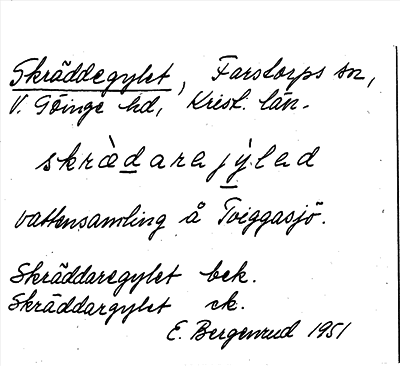 Skräddegylet, Farstorps sn,
V. Göinge hd, Krist. län.
skràdarejẏled
vattensamling å Tviggasjö.
Skräddaregylet bek.
Skräddargylet ek.
E. Bergenrud 1951